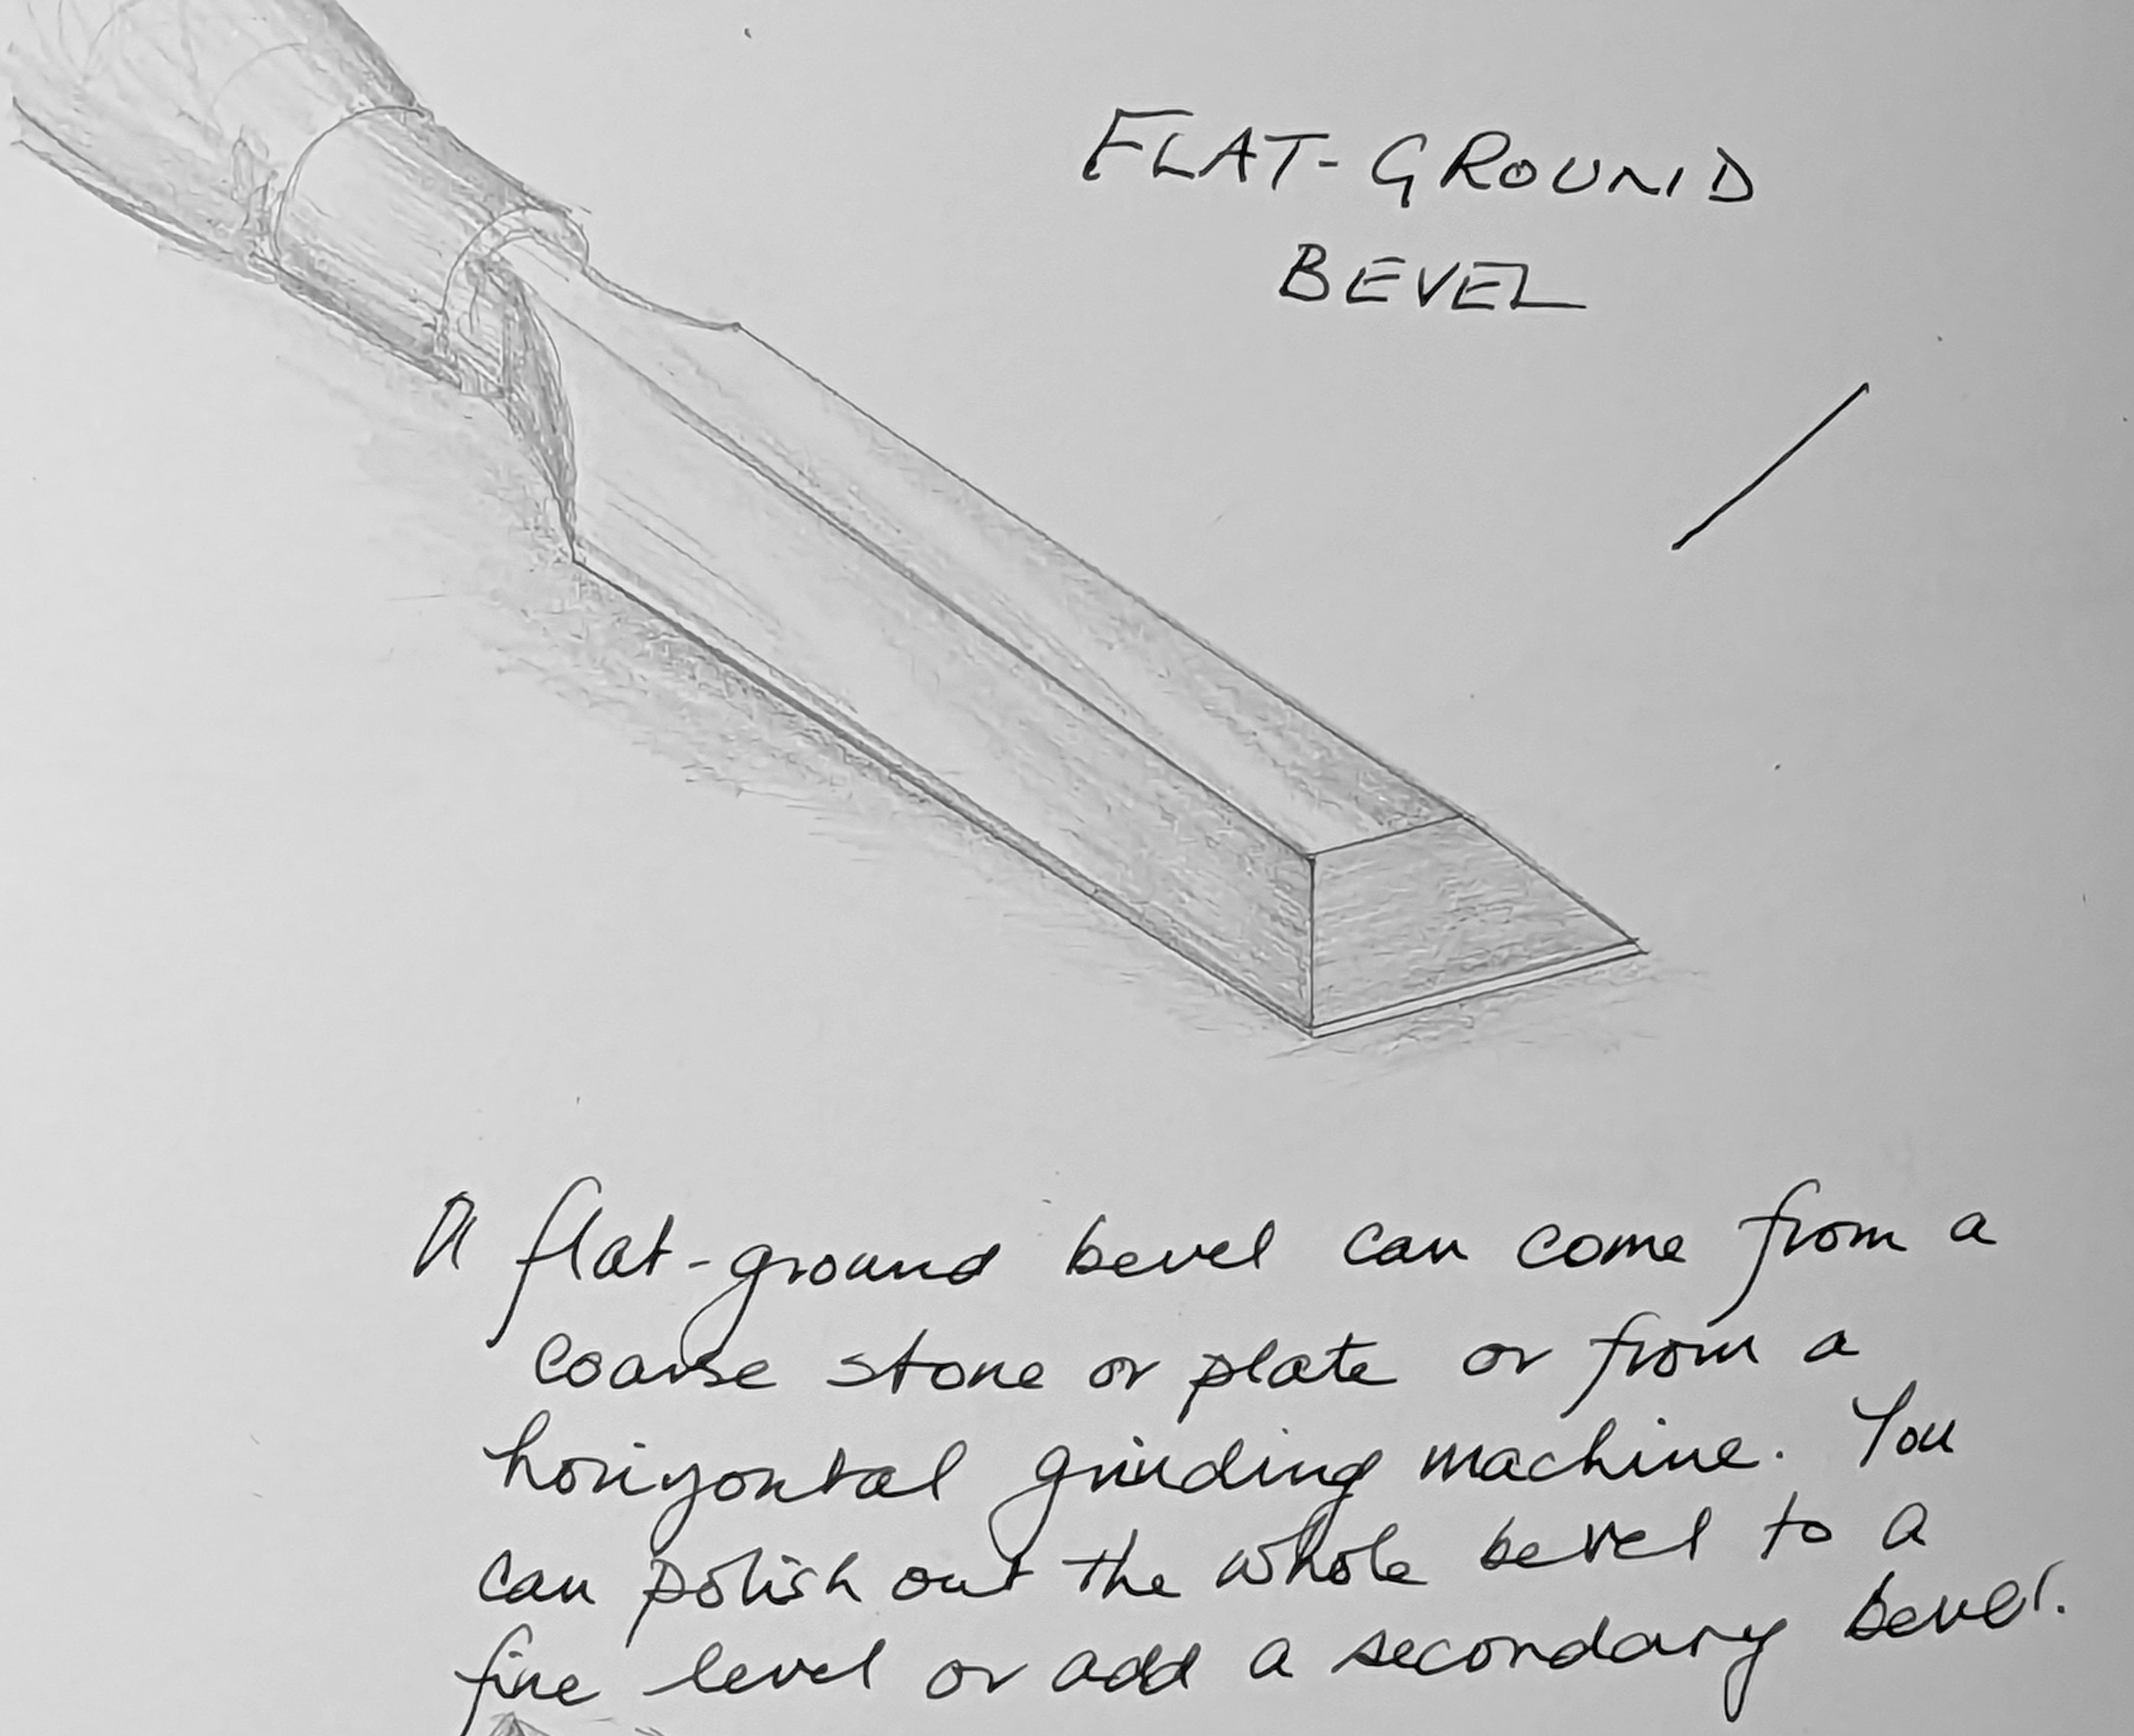 FLAT-GROUND
BEVEL
A flat-ground bevel can come from a
coarse stone or plate or from a
horizontal grinding machine. You
can polish out the whole bevel to a
fine level or add a secondary bevel.